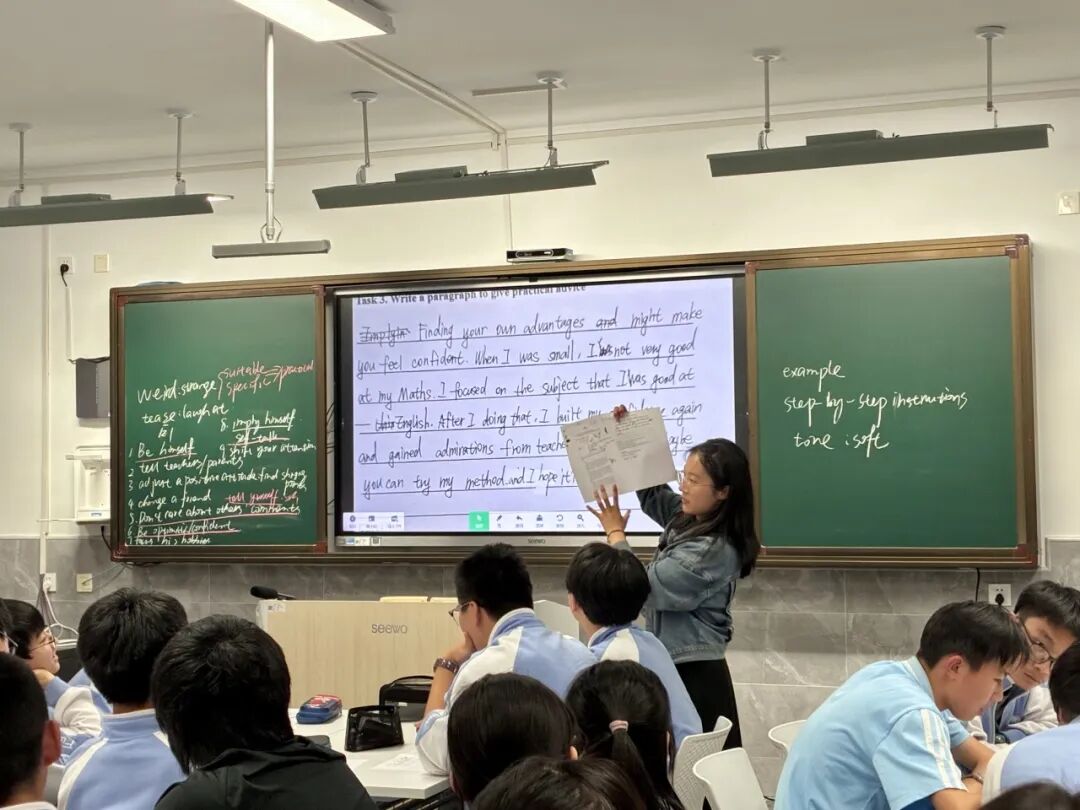 weird.strange
suitable
specific
tease.laugh at
1 Be himself
2 tell teachers/parents
3 adjust a positive attitude.
4 change a friend
5. Don't care about others comments
6 Be optimistic/confident
8. imply himself
self-talk
9 shift your attention
find
tell yourself
Task 3. Write a paragraph to give practical advice
Finding your own advantages and might make
you feel confident. When I was small, I was not very good
at my Maths. I focused on the subject that I was good at
— English. After I doing that, I built my again
and gained admirations from
you can try my method.and I hope it
seewo
seewo
example
step-by-step instructions
tone : soft